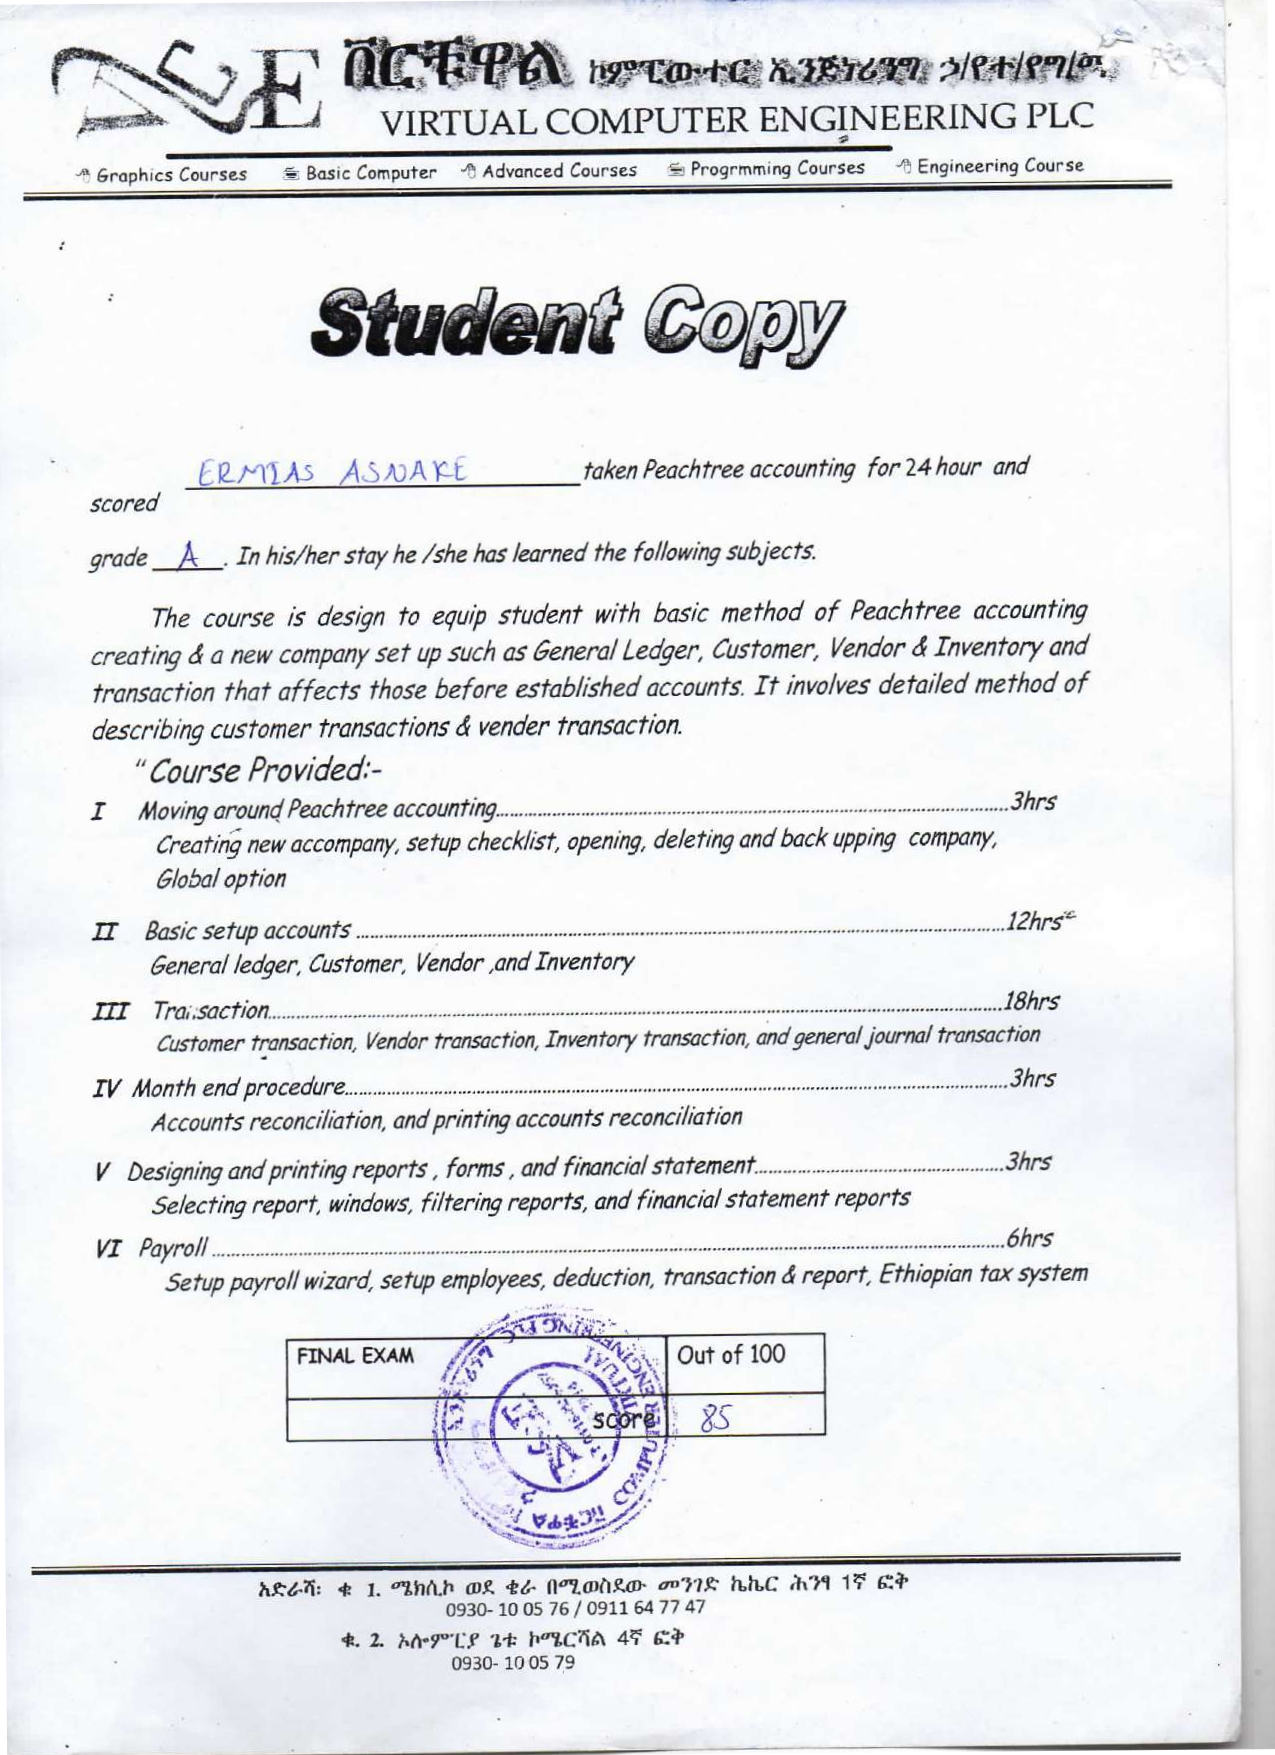 ቨርቹዋል ኮምፒውተር ኢንጅነሪንግ ኃ/የተ/የግ/ማ
VIRTUAL COMPUTER ENGINEERING PLC
Graphics Courses Basic Computer Advanced Courses Progrmming Courses Engineering Course
Student Copy
ERMIAS ASNAKE taken Peachtree accounting for 24 hour and
scored
grade A . In his/her stay he /she has learned the following subjects.
The course is design to equip student with basic method of Peachtree accounting
creating & a new company set up such as General Ledger, Customer, Vendor & Inventory and
transaction that affects those before established accounts. It involves detailed method of
describing customer transactions & vender transaction.
"Course Provided:-
I Moving around Peachtree accounting.......................................................3hrs
Creating new accompany, setup checklist, opening, deleting and back upping company,
Global option
II Basic setup accounts .......................................................12hrs
General ledger, Customer, Vendor ,and Inventory
III Transaction.......................................................18hrs
Customer transaction, Vendor transaction, Inventory transaction, and general journal transaction
IV Month end procedure.......................................................3hrs
Accounts reconciliation, and printing accounts reconciliation
V Designing and printing reports , forms , and financial statement.......................................................3hrs
Selecting report, windows, filtering reports, and financial statement reports
VI Payroll .......................................................6hrs
Setup payroll wizard, setup employees, deduction, transaction & report, Ethiopian tax system
FINAL EXAM Out of 100
score 85
VIRTUAL COMPUTER ENGINEERING PLC
አድራሻ፡ ቁ 1. ሜክሲኮ ወደ ቄራ በሚወስደው መንገድ ኬኬር ሕንፃ 1ኛ ፎቅ
0930- 10 05 76 / 0911 64 77 47
ቁ. 2. ኦሎምፒያ ጌቱ ኮሜርሻል 4ኛ ፎቅ
0930- 10 05 79